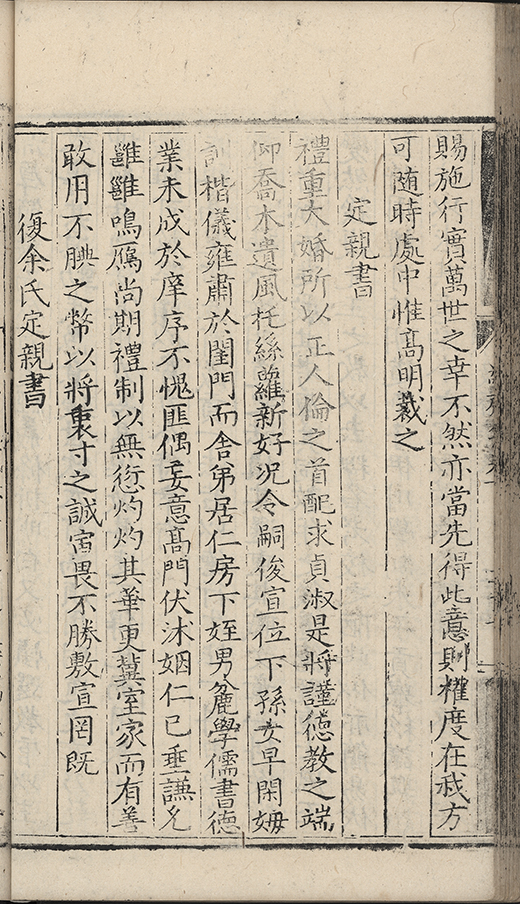 賜施行實萬世之幸不然亦當先得此意則權度在我方
可随時處中惟高明裁之
定親書
禮重大婚所以正人倫之首配求貞淑是將謹德教之端
仰喬木遺風托絲蘿新好况令嗣俊宣位下孫女早閑姆
訓楷儀雍肅於閨門而舍弟居仁房下姪男麁學儒書德
業未成於庠序不愧匪偶妄意高門伏沐姻仁已垂謙允
雝雝鳴鴈尚期禮制以無愆灼灼其華更冀室家而有善
敢用不腆之幣以將衷寸之誠寅畏不勝敷宣罔既
復余氏定親書